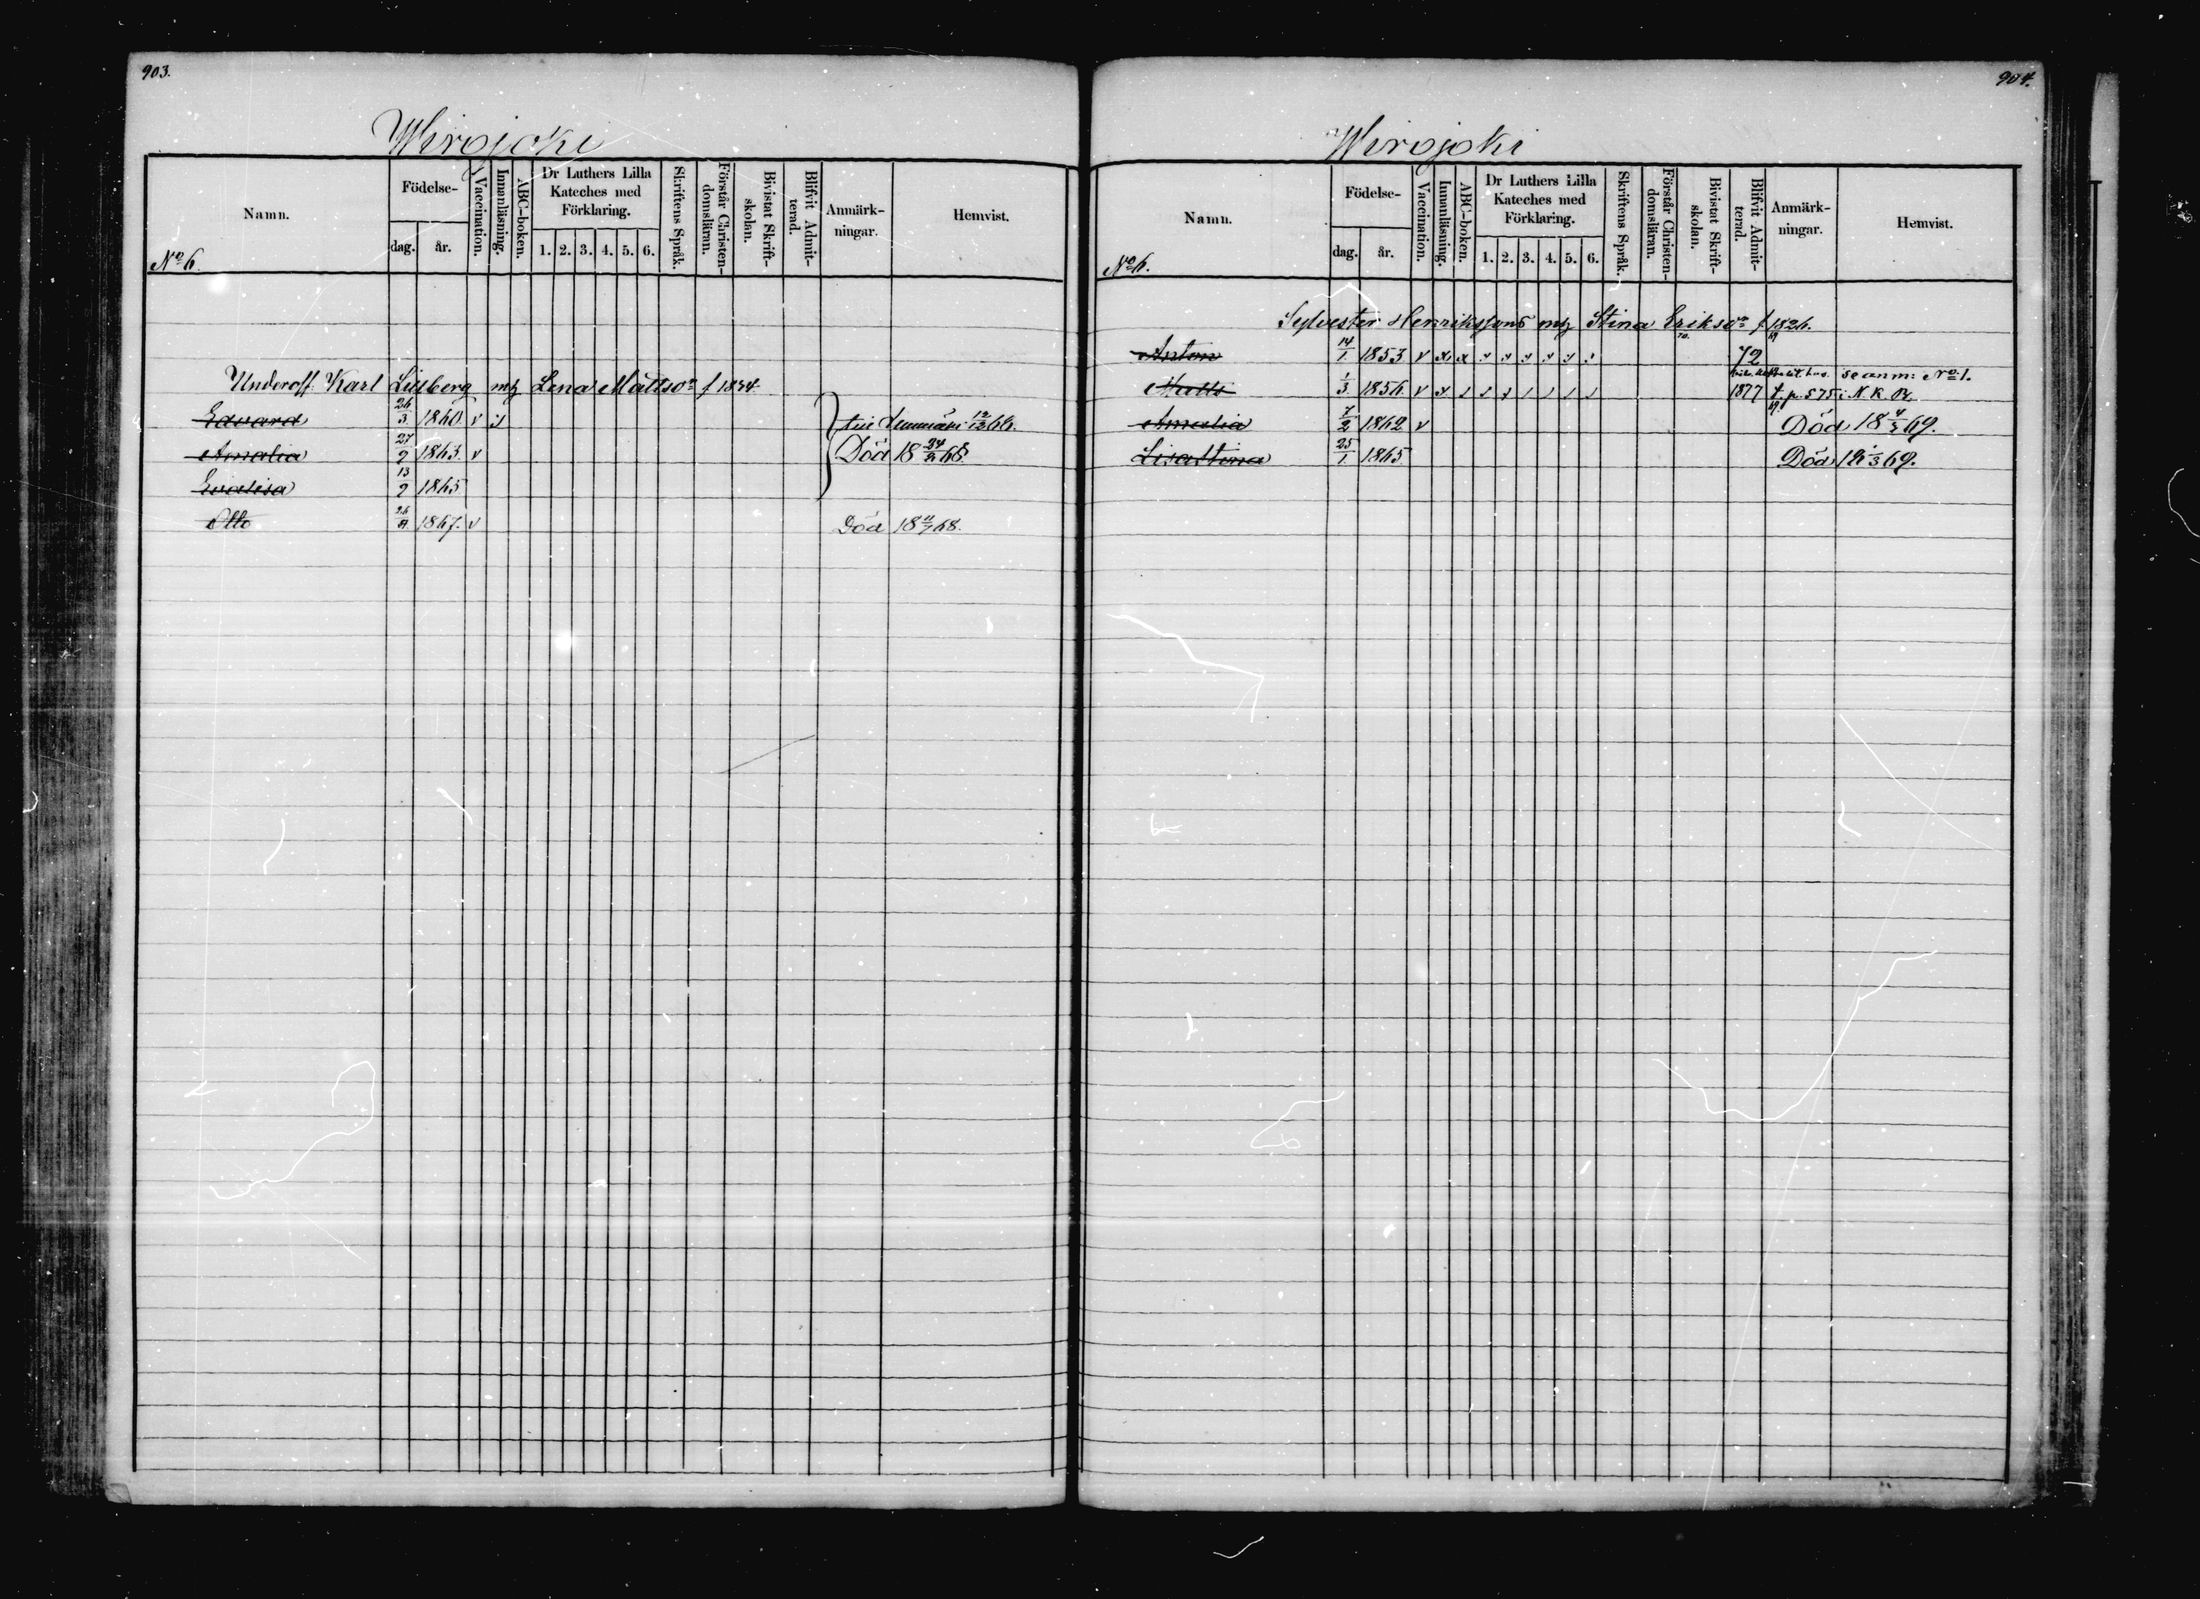 903.
Wirojoki
Namn.
No 6.
Födelse-
dag. år.
Vaccination.
Innanläsning.
ABC-boken.
Dr Luthers Lilla Kateches med Förklaring.
1. 2. 3. 4. 5. 6.
Skriftens Språk.
Förstår Christen-domsläran.
Bivistat Skrift-skolan.
Blifvit Admit-terad.
Anmärk-ningar.
Hemvist.
Underoff. Karl Lillberg m/h Lena Mattsdr f 1834.
Edvard 26/3 1860. v
12/12 66.
Amalia 27/2 1863. v Död 18 24/2 68
Evalisa 13/2 1865
Otto 1867. v Död 18 11/7 68.
904.
Wirojoki
Namn.
No 6.
Födelse-
dag. år.
Vaccination.
Innanläsning.
ABC-boken.
Dr Luthers Lilla Kateches med Förklaring.
1. 2. 3. 4. 5. 6.
Skriftens Språk.
Förstår Christen-domsläran.
Bivistat Skrift-skolan.
Blifvit Admit-terad.
Anmärk-ningar.
Hemvist.
Sylvester Henrikssons m/h Stina Eriksdr f 1826.
Anton 14/1 1853 v x x 72
se anm: No 1.
Matts 1/3 1856 v 1877 t. p. 575 i N. K. B.
Amalia 7/2 1862 v Död 18 4/2 69.
Lisastina 25/1 1865 Död 18 1/3 69.